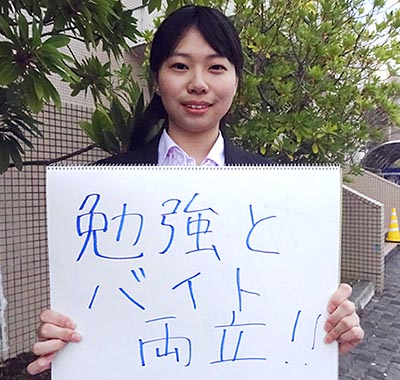 勉強と
バイト
両立!!